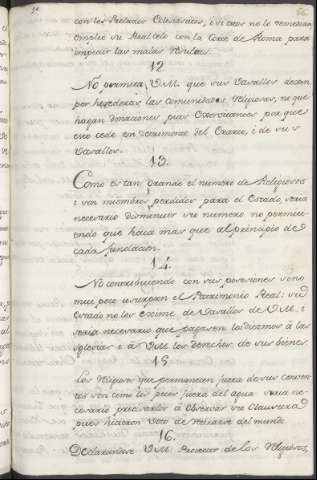 con los Prelados Eclesiasticos, i si esos no lo remedian
emplee su Real celo con la Corte de Roma para
impedir las malas resultas.
12.
No permita V.M. que sus Vasallos dexen
por herederas las comunidades Religiosas, ni que
hagan donaciones pias Exorvitantes por que
esto cede en detrimento del Erario, i de sus
Vasallos.
13.
Como es tan grande el numero de Religiosos
i son miembros perdidos para el Estado, seria
necesario disminuir su numero no permitiendo
que haia mas que al principio de
cada fundacion.
14.
No contribuiendo con sus posesiones sino
mui poco usurpan el Patrimonio Real: su
Estado no los exime de Vasallos de V.M. i
seria necesario que pagasen los diezmos á las
Iglesias i á V.M. los derechos de sus bienes.
15.
Los Religiosos que permanecen fuera de sus conventos
son como los peces fuera del agua: seria necesario
precisarlos á observar su Clausura
pues hicieron Voto de retirarse del mundo.
16.
Declarandose V.M. Protector de los Religiosos,